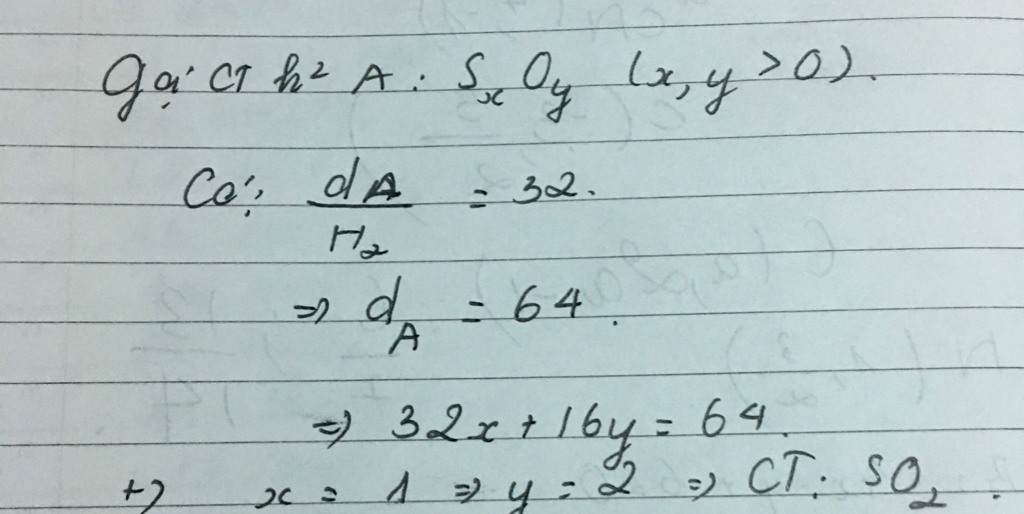 Gọi CT h² A : SxOy (x, y > 0).
Có: dA/H2 = 32.
=> dA = 64.
=> 32x + 16y = 64.
+) x = 1 => y = 2 => CT: SO2.